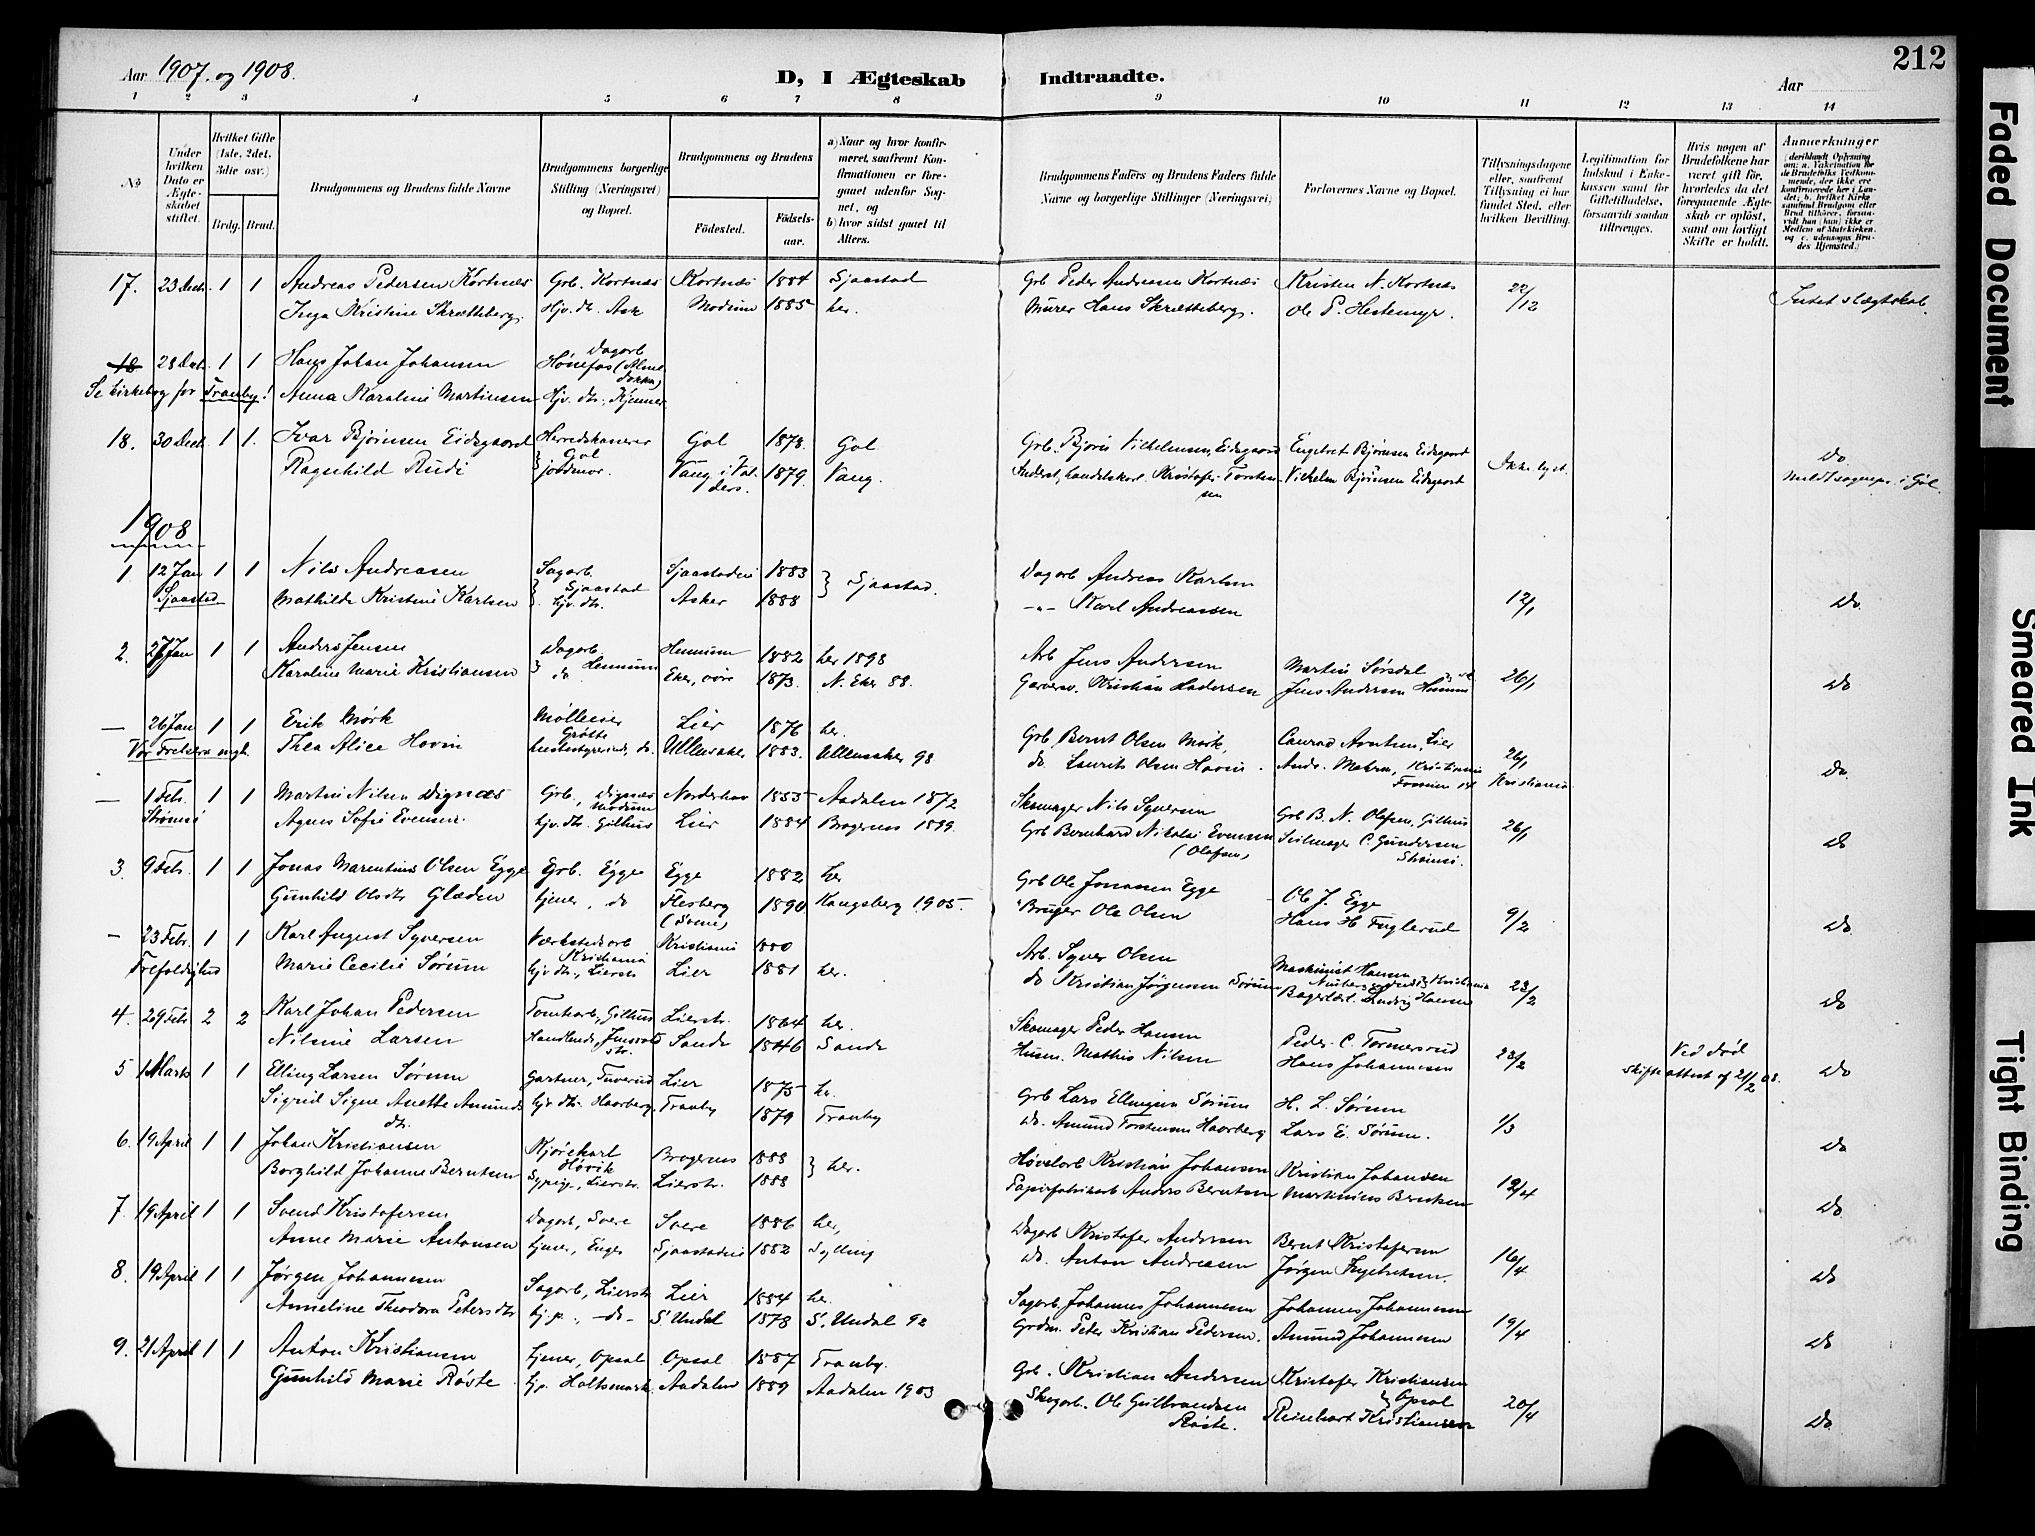 Aar 1907. og 1908.
D, I Ægteskab Indtraadte.
Aar
212
1 2 3 4 5 6 7 8 9 10 11 12 13 14
No
Under hvilken Dato er Ægteskabet stiftet.
Hvilket Gifte (1ste, 2det, 3die osv.)
Brdg. Brud.
Brudgommens og Brudens fulde Navne
Brudgommens borgerlige Stilling (Næringsvei) og Bopæl.
Brudgommens og Brudens
Fødested. Fødselsaar.
a) Naar og hvor konfirmeret, saafremt Konfirmationen er foregaaet udenfor Sognet, og
b) hvor sidst gaaet til Alters.
Brudgommens Faders og Brudens Faders fulde Navne og borgerlige Stillinger (Næringsvei)
Forlovernes Navne og Bopæl.
Tillysningsdagene eller, saafremt Tillysning ei har fundet Sted, efter hvilken Bevilling.
Legitimation for Indskud i Enkekassen samt for Giftetilladelse, forsaavidt saadan tiltrænges.
Hvis nogen af Brudefolkene har været gift før, hvorledes da det foregaaende Ægteskab er opløst, samt om lovligt Skifte er holdt.
Anmærkninger
17. 23 Decb. 1 1 Andreas Pedersen Kortnæs Grb. Kortnæs Kortnæs 1884 Sjaastad Grb Peder Andreasen Kortnæs Kristen N. Kortnæs 22/12 Intet slægtskab.
Inga Kristine Skrætteberg. Hjv. dtr. Ask Modum 1885 her. Murer Hans Skrætteberg. Ole P. Hestemyr.
18 28 Dec. 1 1 Hans Johan Johansen Dagarb Hønefos
Se kirkebog for Tranby! Anna Karoline Martinsen Hjv. dtr., Kjenner
18. 30 Decb. 1 1. Ivar Bjørnsen Eidsgaard Herredskaserer Gol 1878. Gol Grb. Bjørn Vilhelmsen Eidsgaard Engebret Bjørnsen Eidsgaard Do
Ragnhild Rudi } Gol jordmor. Vang i Valders. 1879. Vang. Handelskarl. Kristofer Torstensen Vilhelm Bjørnsen Eidsgaard Ikke lyst.
1908
1 12 Jan 1 1 Nils Andreasen Sagarb. Sjaastaden 1883 } Sjaastad. Dagarb Andreas Karlsen
Sjaastad Mathilde Kristine Karlsen } Sjaastad hjv. dtr. Asker 1888 -"- Karl Andreassen 12/1 Do.
2. 27 Jan 1 1 Anders Jensen Dagarb Hennum 1882 her 1898 Arb Jens Andersen Martin Sørsdal
Karoline Marie Kristiansen } Hennum do Eker, øvre 1873. N. Eker 88. Garversv. Kristian Andersen Jens Andersen Hennum 26/1 Do
— 26 Jan 1 1 Erik Mørk Mølleeier Lier 1876 her. Grb. Bernt Olsen Mørk, Conrad Arntsen, Lier 26/1
Vor Frelsers mgh. Thea Alice Hovin Grøtte do. Ullensaker 1883. Ullensaker 98 do. Laurits Olsen Hovin. Kristiania Do.
— 1 Febr. 1 1 Martin Nilsen Dignæs Grb., Dignæs Modum Norderhov 1855 Aadalen 1872 Skomager Nils Syversen Grb B. N. Olafsen, Gilhus
Strømsø Agnes Sofie Evensen. hjv. dtr. Gilhus Lier 1884 Bragernes 1899. Grb Bernhard Nikolai Evensen (Olafsen) Seilmager C. Gundersen Strømsø. 26/1 Do
3. 9 Febr. 1 1 Jonas Marentius Olsen Egge Grb. Egge Egge 1882 her Grb Ole Jonassen Egge Ole J. Egge
Gunhild Olsdtr Glæden tjener, do Flesberg (Svene) 1890 Kongsberg 1905. Bruger Ole Olsen Hans H. Fuglerud 9/2 Do
— 23 Febr. 1 1 Karl August Syversen Værkstedsarb Kristiania Kristiania 1880 Arb. Syver Olsen Maskinist Hansen
Trefoldighed Marie Cecilie Sørum hjv. dtr., Lierstr Lier 1881 her. do Kristian Jørgensen Sørum Ludvig Hansen 23/2 Do
4. 29 Feb 2 2 Karl Johan Pedersen Tomtarb, Gilhus Lierstr. 1864 her. Skomager Peder Hansen Peder C. Tormersrud Ved død
Nilsine Larsen Sande 1846 Sande Husm. Mathis Nilsen Hans Johannesen 23/2 skifteattest af 21/2 08. Do
5 1 Marts 1 1 Elling Larsen Sørum Gartner, Tuverud Lier 1875 her. Grb Lars Ellingsen Sørum H. L. Sørum
Sigrid Signe Anette Amundsdtr. hjv dtr. Haarberg, Tranby 1879 Tranby Do. Amund Torstensen Haarberg Lars E. Sørum. 1/3 Do
6. 19 April 1 1 Johan Kristiansen Kjørekarl Høvik Bragernes 1888 } her. Høvelarb Kristian Johansen Kristian Johansen
Borghild Johanne Berntsen Sypige, Lierstr. Lierstr. 1888 Papirfabrikarb Anders Berntsen Martinius Berntsen 12/4 Do.
7. 19 April 1 1 Svend Kristofersen Dagarb, Svere Svere 1886 her, Dagarb Kristofer Andersen Bernt Kristofersen
Anne Marie Antonsen tjener, Enger Sjaastaden 1882 Sylling Do. Anton Andreasen Jørgen Ingebretsen. 16/4 Do
8. 19 April 1 1 Jørgen Johannesen Sagarb, Lierstr Lier 1884 her. Sagarb. Johannes Johannesen Johannes Johannesen
Anneline Theodora Petersdtr tj.p., -do- S. Undal 1878 S. Undal 92 Grdm. Peder Kristian Pedersen. Amund Johannesen 19/4 Do
9. 21 April 1 1 Anton Kristiansen tjener, Opsal Opsal 1887 Tranby. Grb. Kristian Andersen Kristofer Kristiansen
Gunhild Marie Røste. tjp. Holtsmark Aadalen 1889 Aadalen 1903 Skogarb. Ole Gulbrandsen Røste. } Opsal Reinhart Kristiansen 20/4 Do
Faded Document
Smeared Ink
Tight Binding